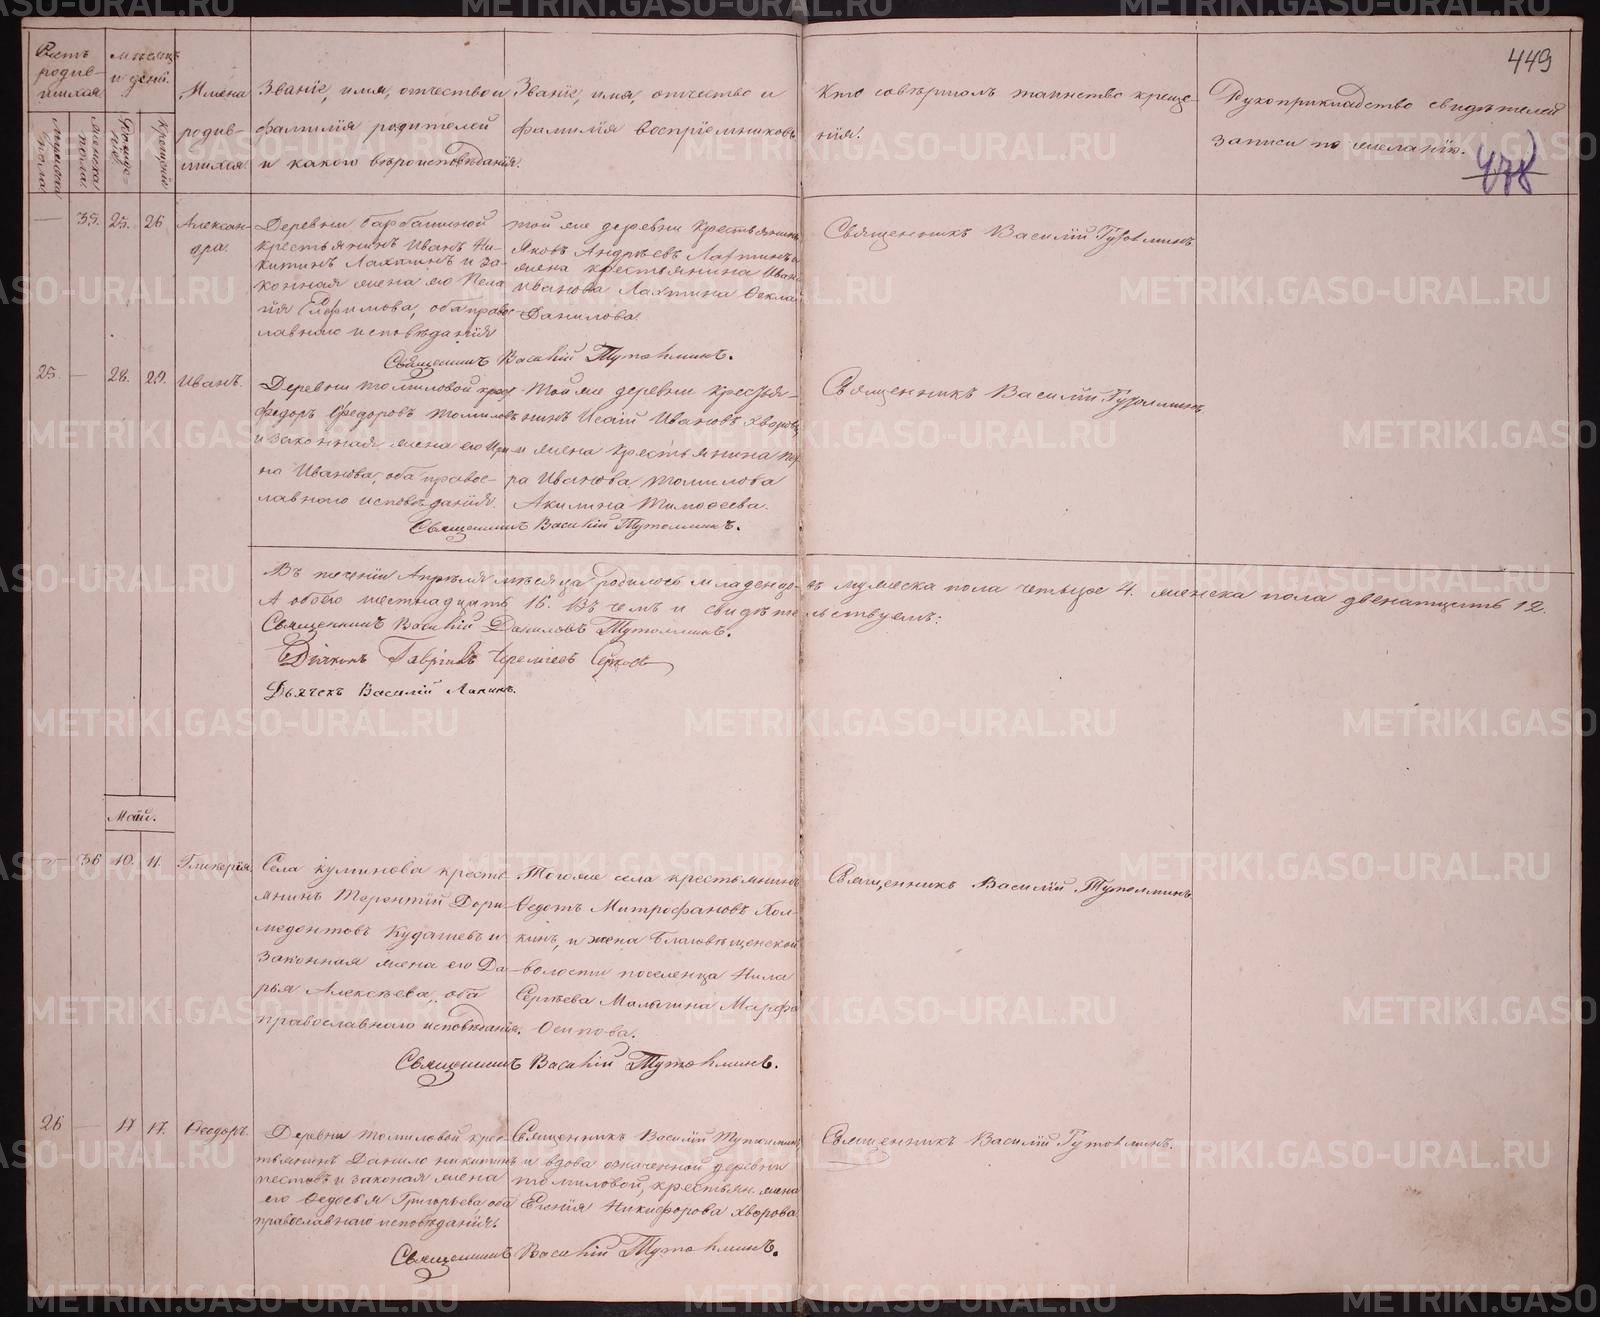 449
478
Счетъ родив-шихся
Мѣсяцъ и день.
Имена родив-шихся.
Званіе, имя, отчество и
фамилія родителей
и какого вѣроисповѣданія.
Званіе, имя, отчество и
фамилія воспріемниковъ
Кто совершалъ таинство креще-
нія.
Рукоприкладство свидѣтелей
записи по желанію.
мужеска пола
женска пола.
рожде-нія
крещенія
— 35. 25. 26
Алексан-
дра.
Деревни Барбашиной
крестьянинъ Иванъ Ни-
китинъ Лахтинъ и за-
конная жена его Пела
гія Ефимова, оба право-
славнаго исповѣданія
той же деревни крестьянинъ
Яковъ Андреевъ Лахтинъ и
жена крестьянина Иван
Иванова Лахтина Ѳекла
Данилова.
Священникъ Василій Тутолминъ
Священникъ Василій Тутолминъ.
25. — 28. 29. Иванъ.
Деревни Томиловой крес
Ѳедоръ Ѳедоровъ Томиловъ
и законная жена его Ири
на Иванова, оба правос-
лавнаго исповѣданія.
Той же деревни крестья-
нинъ Исаій Ивановъ Хворовъ
и жена крестьянина
ра Иванова Томилова
Акилина Тимоѳеева.
Священникъ Василій Тутолминъ
Священникъ Василій Тутолминъ.
Въ теченіи Апрѣля мѣсяца родилось младенцовъ мужеска пола четыре 4. женска пола двенатцать 12.
А обоего шестнадцать 16. Въ чемъ и свидѣтельствуемъ:
Священникъ Василій Даниловъ Тутолминъ.
Діяконъ Гавріилъ
Дьячекъ Василій
Май.
— 36 10. 11. Гликерія.
Села Куминова кресть-
янинъ Терентій Дори-
медонтовъ Кудашевъ и
законная жена его Да-
рья Алексѣева, оба
православнаго исповѣданія.
Тогоже села крестьянинъ
Ѳедотъ Митрофановъ Хол-
кинъ, и жена Благовѣщенской
волости поселенца Нила
Сергѣева Малыгина Марфа
Осипова.
Священникъ Василій Тутолминъ
Священникъ Василій Тутолминъ.
26 — 17 17. Ѳеодоръ.
Деревни Томиловой крес-
тьянинъ Данило Никитинъ
Пестовъ и законая жена
его Ѳедосья Григорьева, оба
православнаго исповѣданія.
Священникъ Василій Тутолминъ
и вдова означенной деревни
Томиловой, крестьян. жена
Евгенія Никифорова Хворова
Священникъ Василій Тутолминъ.
Священникъ Василій Тутолминъ.
METRIKI.GASO-URAL.RU